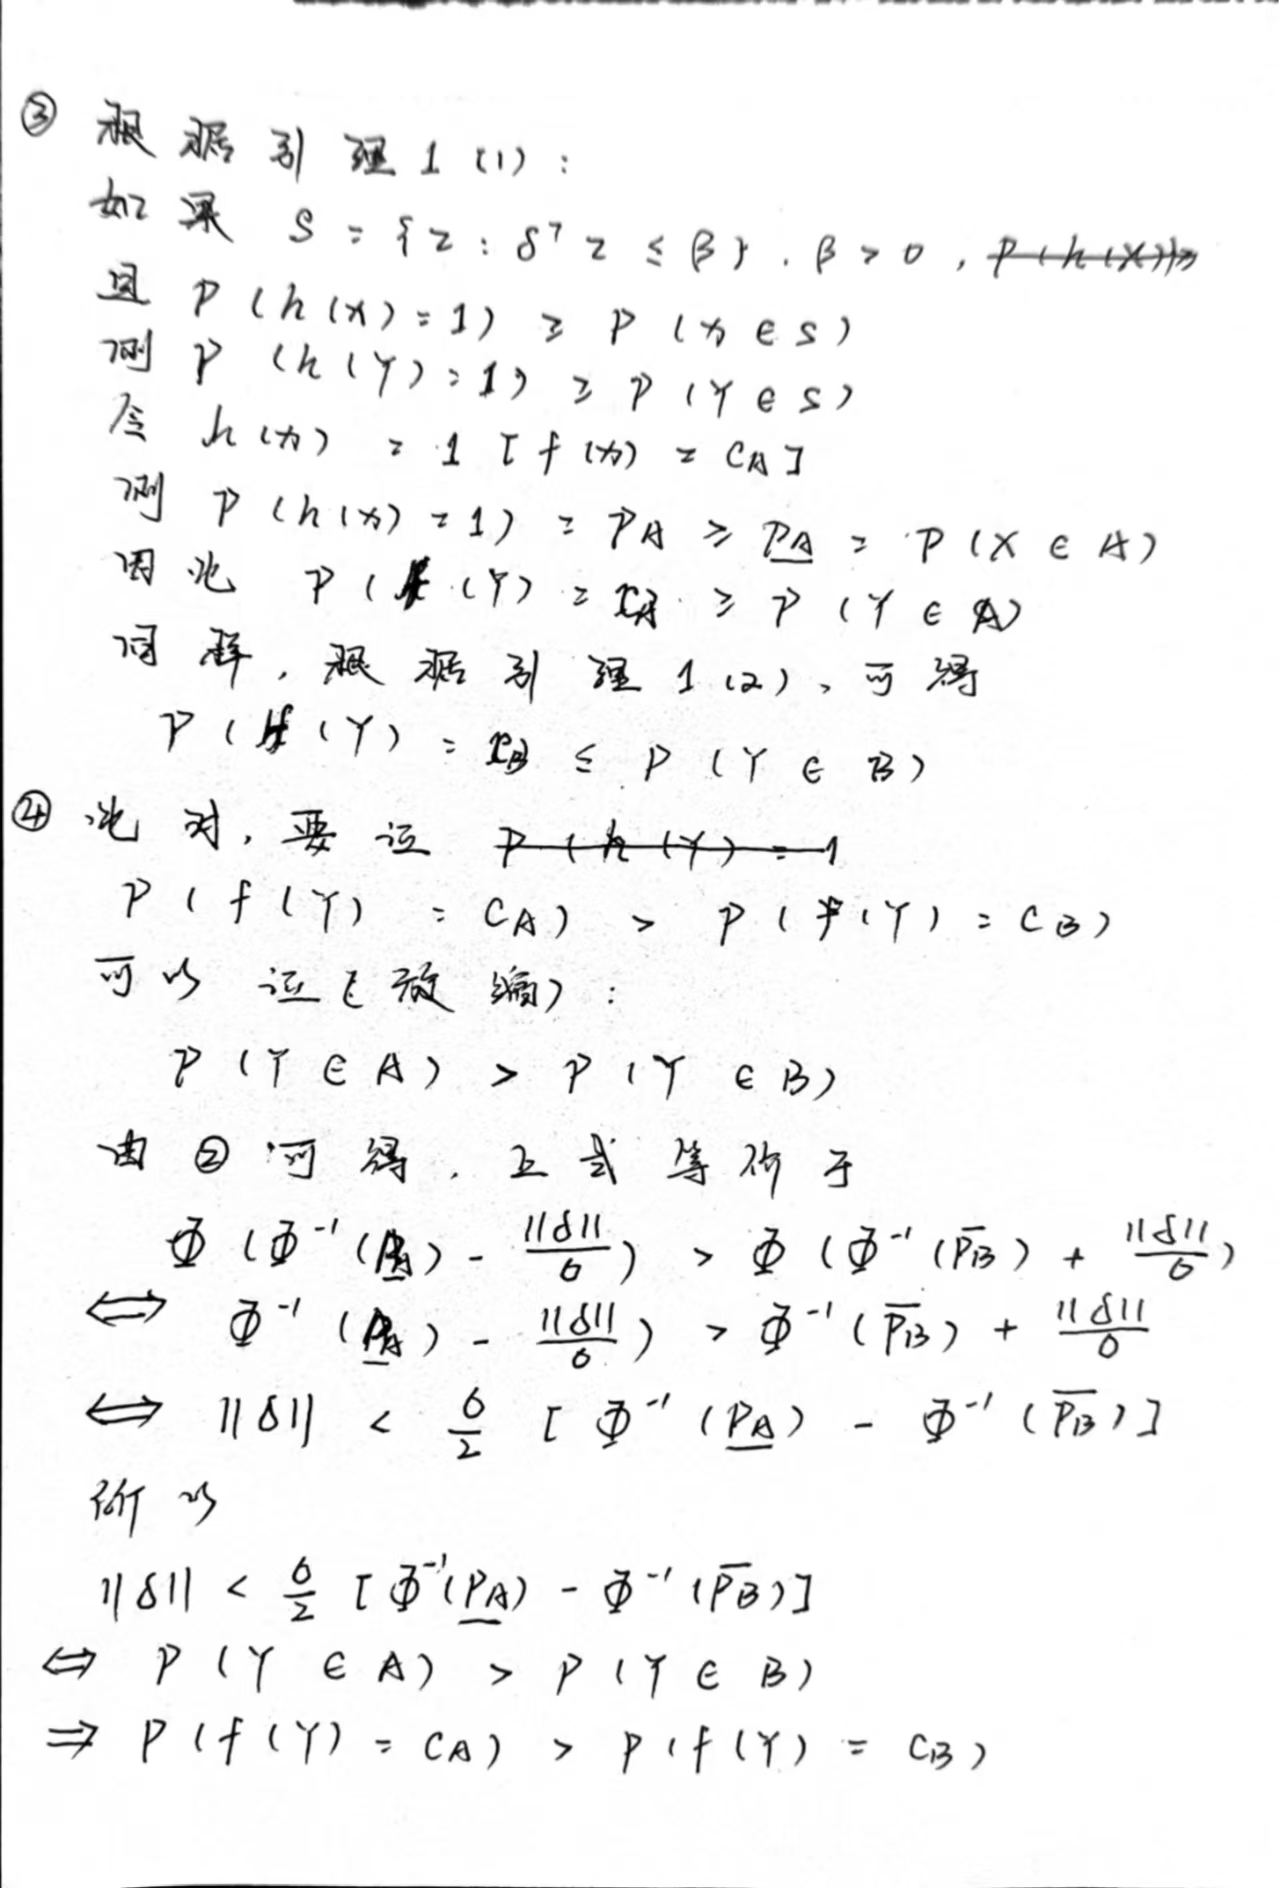 ③ 根据引理1(1):
如果 S = {z : δᵀz ≤ β}, β > 0, P(h(X))
且 P(h(x) = 1) ≥ P(x ∈ S)
则 P(h(Y) = 1) ≥ P(Y ∈ S)
令 h(x) = 1[f(x) = C_A]
则 P(h(x) = 1) = P_A ≥ \underline{P_A} = P(X ∈ A)
因此 P(f(Y) = C_A ≥ P(Y ∈ A)
同样, 根据引理1(2), 可得
P(f(Y) = C_B ≤ P(Y ∈ B)
④ 此时, 要证 P(h(Y) = 1
P(f(Y) = C_A) > P(f(Y) = C_B)
可以证(放缩):
P(Y ∈ A) > P(Y ∈ B)
由②可得, 上式等价于
Φ(Φ⁻¹(\underline{P_A}) - ||δ||/σ) > Φ(Φ⁻¹(\overline{P_B}) + ||δ||/σ)
⟺ Φ⁻¹(\underline{P_A}) - ||δ||/σ) > Φ⁻¹(\overline{P_B}) + ||δ||/σ
⟺ ||δ|| < σ/2 [Φ⁻¹(\underline{P_A}) - Φ⁻¹(\overline{P_B})]
所以
||δ|| < σ/2 [Φ⁻¹(\underline{P_A}) - Φ⁻¹(\overline{P_B})]
⟺ P(Y ∈ A) > P(Y ∈ B)
⇒ P(f(Y) = C_A) > P(f(Y) = C_B)